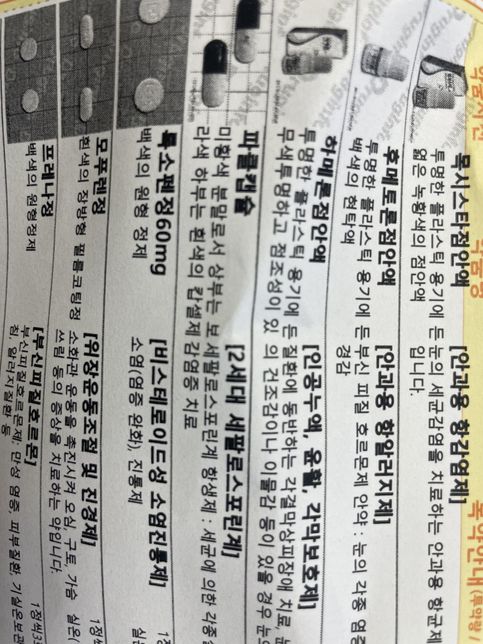 약품사진 약품명 복약안내(투약량/
목시스타점안액 [안과용 항감염제]
투명한 플라스틱 용기에 든 눈의 세균감염을 치료하는 안과용 항균제
엷은 녹황색의 점안액 입니다.
후메토론점안액 [안과용 항알러지제]
투명한 플라스틱 용기에 든 부신 피질 호르몬제 안약 : 눈의 각종 염증
백색의 현탁액 경감
히메론점안액 [인공누액, 윤활, 각막보호제]
투명한 플라스틱 용기에 든 질환에 동반하는 각결막상피장애 치료, 눈
무색투명하고 점조성이 있 의 건조감이나 이물감 등이 있을 경우 눈의
파클캡슐 [2세대 세팔로스포린제]
미황색 분말로서 상부는 보 세팔로스포린계 항생제 : 세균에 의한 각종
라색 하부는 흰색의 캅셀제 감염증 치료
록소펜정60mg [비스테로이드성 소염진통제]
백색의 원형 정제 소염(염증 완화), 진통제
모푸렌정 [위장운동조절 및 진경제]
흰색의 장방형 필름코팅정 소화관 운동을 촉진시켜 오심, 구토, 가슴
쓰림 등의 증상을 치료하는 약입니다.
프레니정 [부신피질호르몬]
백색의 원형정제 부신피질호르몬제: 만성 염증, 피부질환, 기
침, 알러지질환 등